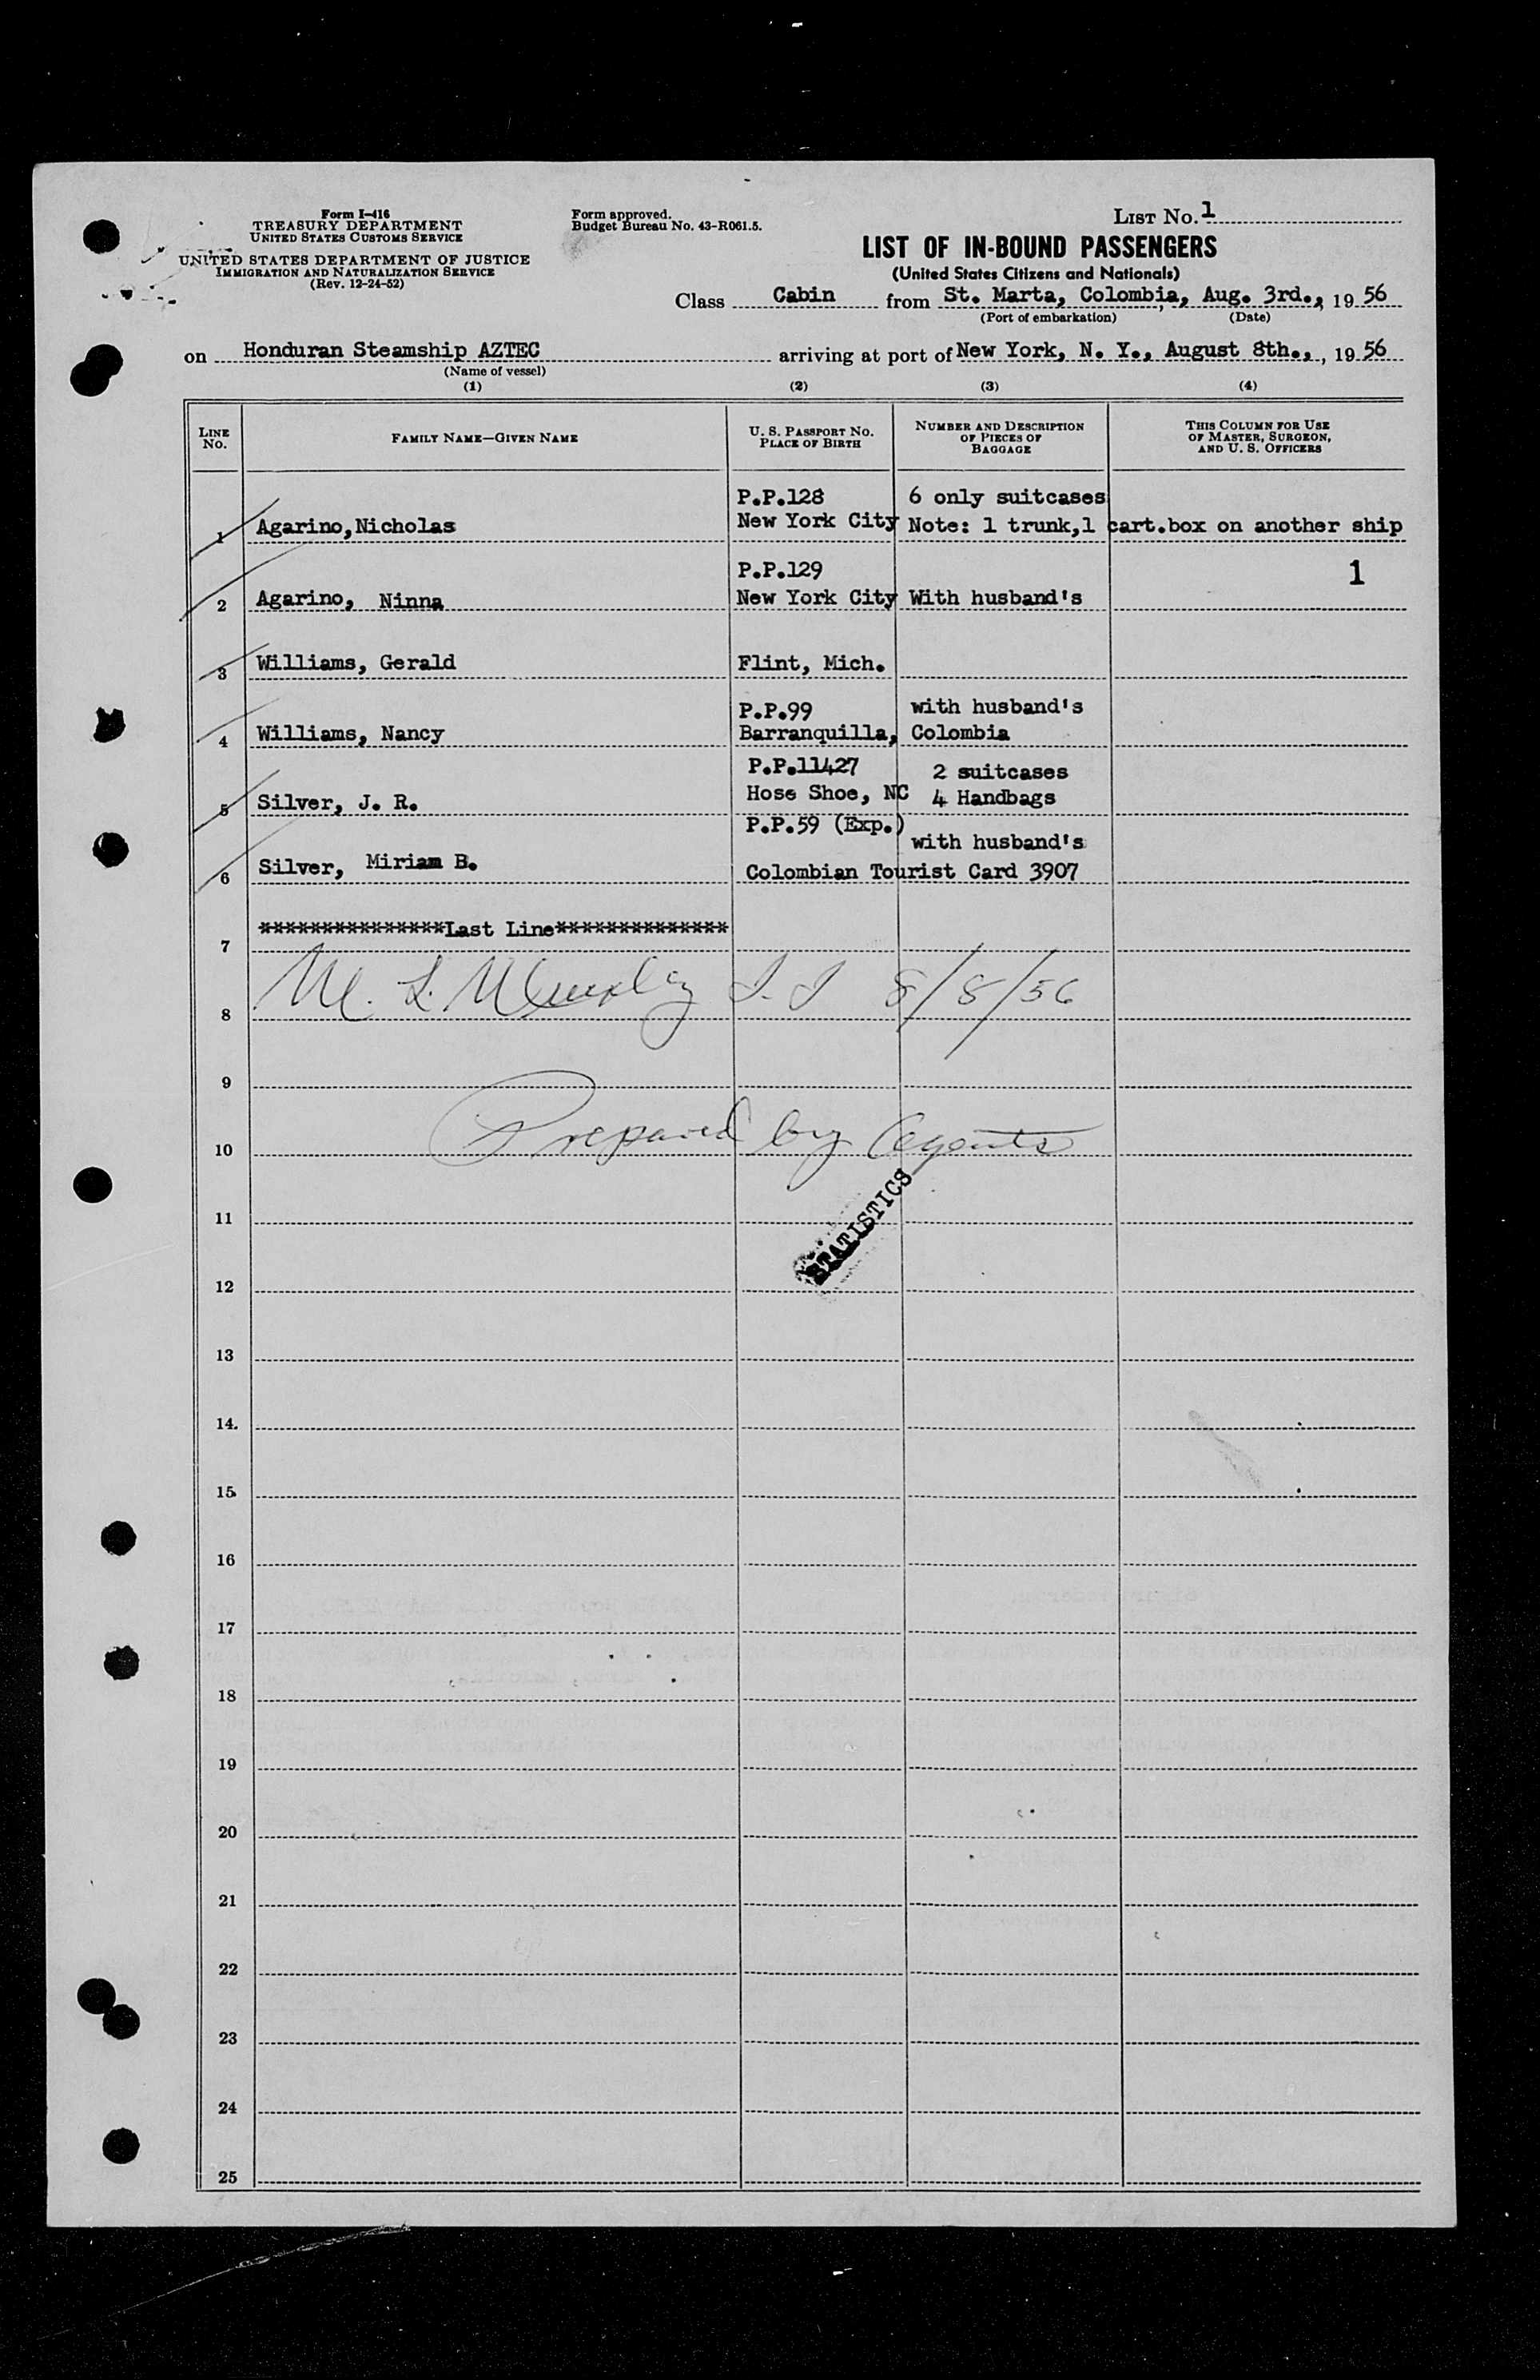 Form I-416
TREASURY DEPARTMENT
UNITED STATES CUSTOMS SERVICE
UNITED STATES DEPARTMENT OF JUSTICE
IMMIGRATION AND NATURALIZATION SERVICE
(Rev. 12-24-52)
Form approved.
Budget Bureau No. 43-R061.5.
LIST No. 1
LIST OF IN-BOUND PASSENGERS
(United States Citizens and Nationals)
Class Cabin from St. Marta, Colombia, Aug. 3rd., 19 56
(Port of embarkation) (Date)
on Honduran Steamship AZTEC arriving at port of New York, N. Y., August 8th., , 19 56
(Name of vessel)
(1) (2) (3) (4)
LINE No.
FAMILY NAME—GIVEN NAME
U. S. PASSPORT No.
PLACE OF BIRTH
NUMBER AND DESCRIPTION
OF PIECES OF
BAGGAGE
THIS COLUMN FOR USE
OF MASTER, SURGEON,
AND U. S. OFFICERS
P.P.128 6 only suitcases
1 Agarino,Nicholas New York City Note: 1 trunk,1 cart.box on another ship
P.P.129 1
2 Agarino, Ninna New York City With husband's
3 Williams, Gerald Flint, Mich.
P.P.99 with husband's
4 Williams, Nancy Barranquilla, Colombia
P.P.11427 2 suitcases
5 Silver, J. R. Hose Shoe, NC 4 Handbags
P.P.59 (Exp.)
with husband's
6 Silver, Miriam B. Colombian Tourist Card 3907
***************Last Line**************
7
M. L. 8/8/56
8
9
Prepared by Agents
10
STATISTICS
11
12
13
14
15
16
17
18
19
20
21
22
23
24
25